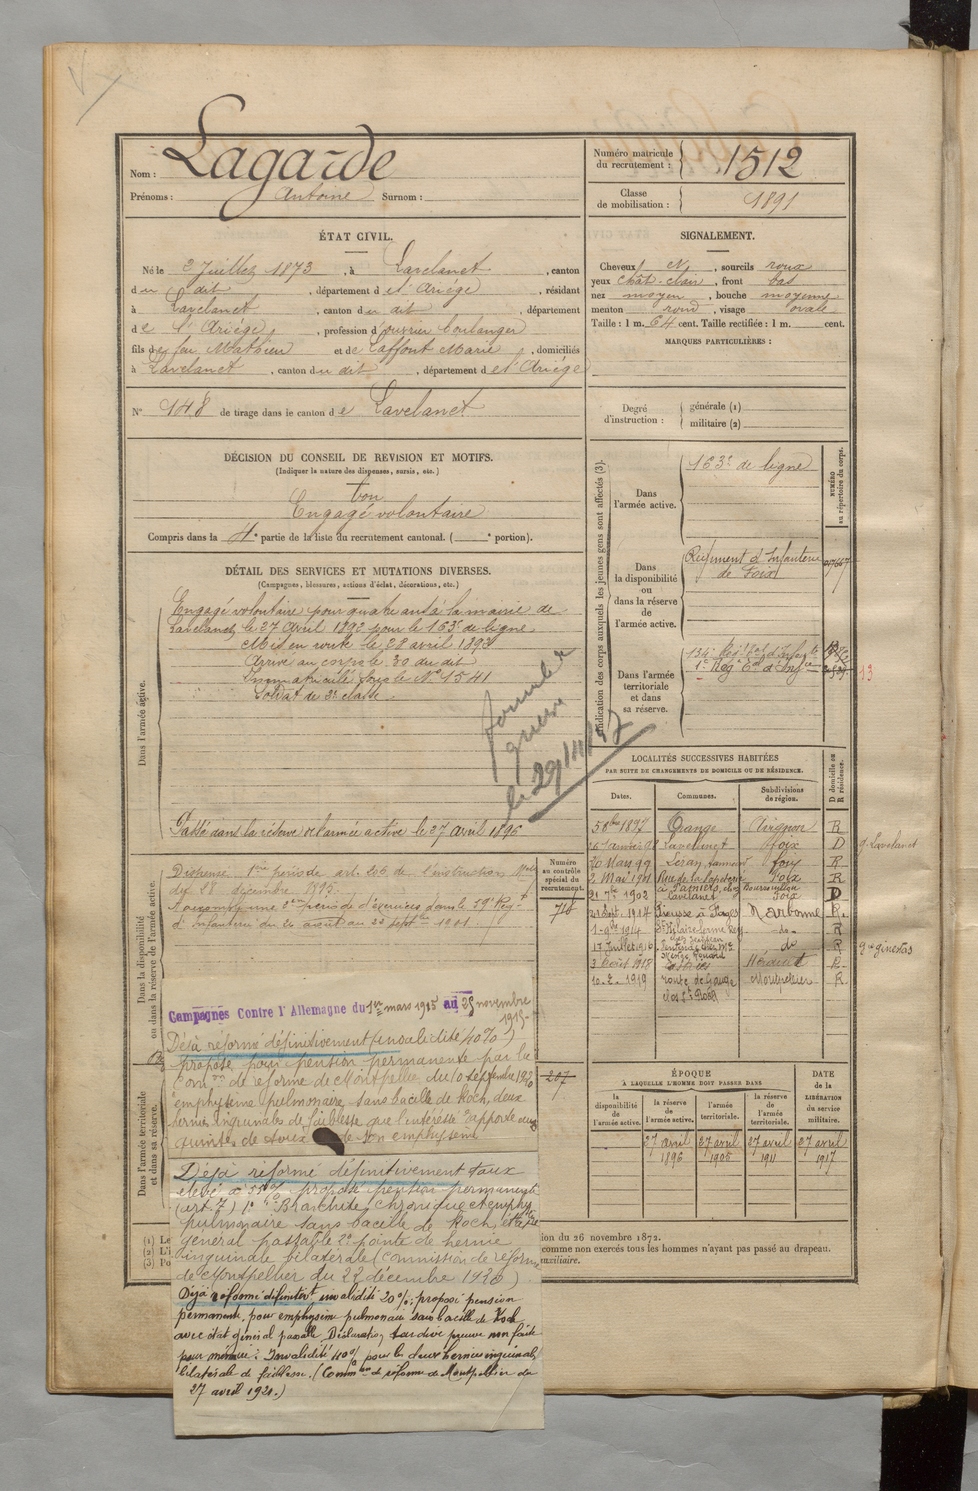 Nom : Lagarde
Prénoms : Antoine Surnom :
Numéro matricule du recrutement : 1512
Classe de mobilisation : 1891
ÉTAT CIVIL.
Né le 2 Juillet 1873, à Lavelanet, canton
du dit, département de l'Ariège, résidant
à Lavelanet, canton du dit, département
de l'Ariège, profession d'ouvrier boulanger
fils de feu Mathieu et de Laffont Marie, domiciliés
à Lavelanet, canton du dit, département de l'Ariège
N° 148 de tirage dans le canton de Lavelanet
SIGNALEMENT.
Cheveux et, sourcils roux
yeux chât. clair, front bas
nez moyen, bouche moyenne
menton rond, visage ovale
Taille : 1 m. 64 cent. Taille rectifiée : 1 m. cent.
MARQUES PARTICULIÈRES :
Degré d'instruction : générale (1)
militaire (2)
DÉCISION DU CONSEIL DE REVISION ET MOTIFS.
(Indiquer la nature des dispenses, sursis, etc.)
bon
Engagé volontaire
Compris dans la 4e partie de la liste du recrutement cantonal. ( e portion).
DÉTAIL DES SERVICES ET MUTATIONS DIVERSES.
(Campagnes, blessures, actions d'éclat, décorations, etc.)
Dans l'armée active.
Engagé volontaire pour quatre ans à la mairie de
Lavelanet le 27 Avril 1892 pour le 163e de ligne.
Mis en route le 28 avril 1892
Arrivé au corps le 30 du dit
Immatriculé sous le N° 1541
Soldat de 2e classe.
le 29/11/
Passé dans la réserve de l'armée active le 27 avril 1896
Indication des corps auxquels les jeunes gens sont affectés (3).
NUMÉRO au répertoire du corps.
Dans l'armée active. 163e de ligne
Dans la disponibilité ou dans la réserve de l'armée active. Régiment d'Infanterie de Foix
Dans l'armée territoriale et dans sa réserve. 134e Régt Tal d'Infie
13
LOCALITÉS SUCCESSIVES HABITÉES
PAR SUITE DE CHANGEMENTS DE DOMICILE OU DE RÉSIDENCE.
Dates. Communes. Subdivisions de région. D domicile ou R résidence.
5 8bre 1897 Orange Avignon R
Lavelanet Foix D g. Lavelanet
20 Mars 99 Foix R
2 Mai 1901 Rue de la à Pamiers Foix R
1902 Lavelanet Foix D
21 Sept. 1914 Narbonne R.
1914 do R
17 Juillet 1916 do R gie ginestas
3 Août 1918 R
10.2.1919 route de Montpellier R
Dans la disponibilité ou dans la réserve de l'armée active.
Dispensé 1ère période art. 206 de l'instruction Mlle
du 28 décembre 1895.
A accompli une 2ème période d'exercices dans le 59e Régt
d'Infanterie du 26 août au 22 septbre 1901
Numéro au contrôle spécial du recrutement.
716
207
Campagnes Contre l'Allemagne du 1er mars 1915 au 25 novembre
1915
Dans l'armée territoriale et dans sa réserve.
Déjà réformé définitivement (invalidité 40%)
proposé pour pension permanente par la
Comon de réforme de Montpellier du 10 septembre 1920
emphysème pulmonaire, sans bacille de Koch, deux
hernies inguinales de faiblesse que l'intéressé rapporte aux
quintes de toux de son emphysème
Déjà réformé définitivement taux
élevé à 55% proposé pension permanente
(art. 7) 1° Bronchite chronique et emphyse
pulmonaire sans bacille de Koch, état
général passable 2° pointe de hernie
inguinale bilatérale (Commission de réforme
de Montpellier du 22 décembre 1920)
Déjà réformé définitivt invalidité 20%: proposé pension
permanente, pour emphysème pulmonaire sans bacille de Koch
avec état général passable. Déclaration tardive preuve non faite
pour : Invalidité 40% pour les deux hernies inguinales
bilatérale de faiblesse. (Common de réforme de Montpellier du
27 avril 1921.)
ÉPOQUE
À LAQUELLE L'HOMME DOIT PASSER DANS
la disponibilité de l'armée active. la réserve de l'armée active. l'armée territoriale. la réserve de l'armée territoriale.
DATE de la LIBÉRATION du service militaire.
27 avril 1896 27 avril 1905 27 avril 1911 27 avril 1917
(1) Le
(2) L'i
(3) Po
ion du 26 novembre 1872.
comme non exercés tous les hommes n'ayant pas passé au drapeau.
auxiliaire.